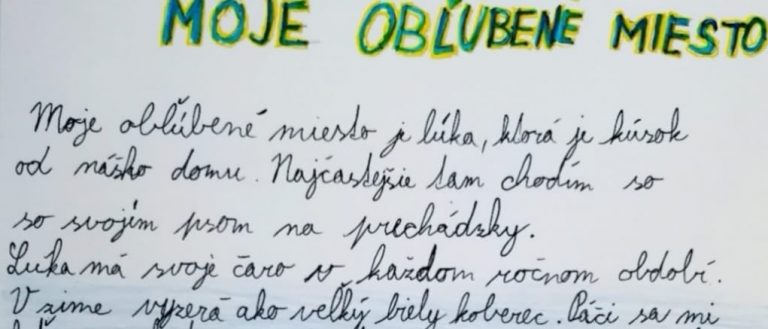 MOJE OBĽÚBENÉ MIESTO
Moje obľúbené miesto je lúka, ktorá je kúsok
od nášho domu. Najčastejšie tam chodím so
so svojím psom na prechádzky.
Luka má svoje čaro v každom ročnom období.
V zime vyzerá ako veľký biely koberec. Páči sa mi